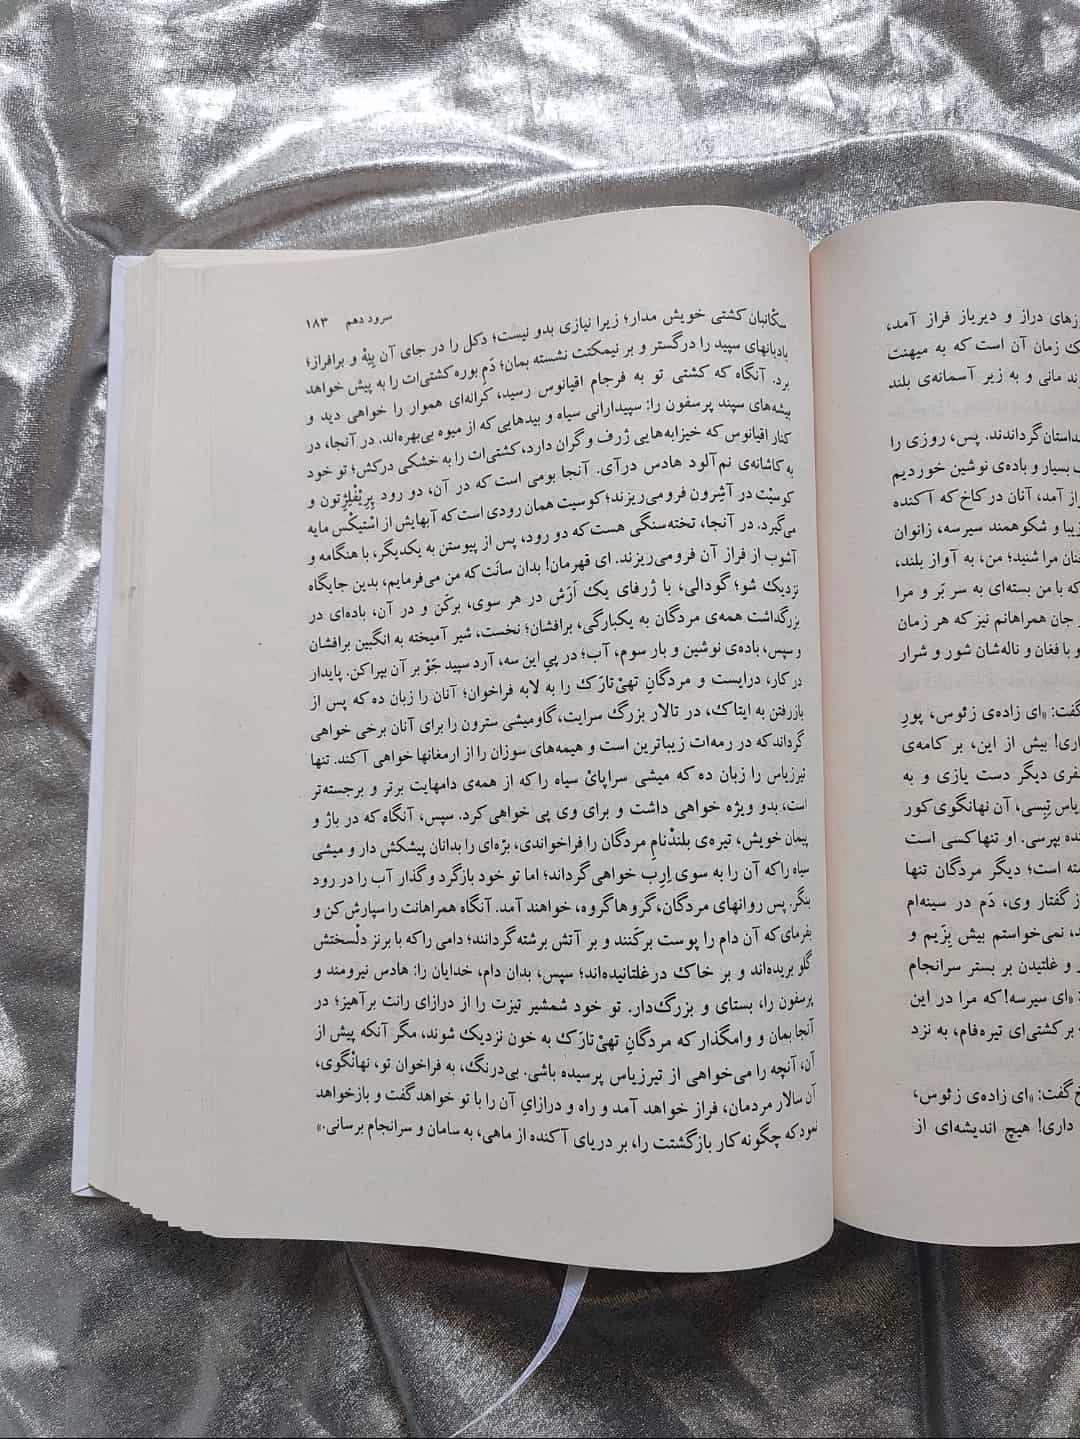 زهای دراز و دیریاز فراز آمد،
ک زمان آن است که به میهنت
ند مانی و به زیر آسمانه‌ی بلند
داستان گرداندند. پس، روزی را
بسیار و باده‌ی نوشین خوردیم
از آمد، آنان در کاخ که آکنده
زیبا و شکوهمند سیرسه، زانوان
نان مرا شنید؛ من، به آواز بلند،
که با من بسته‌ای به سر بَر و مرا
جان همراهانم نیز که هر زمان
و با فغان و ناله‌شان شور و شرار
گفت: «ای زاده‌ی زئوس، پورِ
اری! بیش از این، بر کامه‌ی
فری دیگر دست یازی و به
یاس تِبِسی، آن نهانگوی کور
ده بپرسی. او تنها کسی است
ته است؛ دیگر مردگان تنها
ز گفتار وی، دَم در سینه‌ام
د، نمی‌خواستم بیش بِزَیم و
ر و غلتیدن بر بستر سرانجام
«ای سیرسه! که مرا در این
بر کشتی‌ای تیره‌فام، به نزد
گفت: «ای زاده‌ی زئوس،
داری! هیچ اندیشه‌ای از
سرود دهم ۱۸۳
سکّانبان کشتی خویش مدار؛ زیرا نیازی بدو نیست؛ دکل را در جای آن بِنِهْ و برافراز؛
بادبانهای سپید را درگستر و بر نیمکتت نشسته بمان؛ دَمِ بوره کشتی‌ات را به پیش خواهد
برد. آنگاه که کشتی تو به فرجام اقیانوس رسید، کرانه‌ای هموار را خواهی دید و
بیشه‌های سپند پرسفون را: سپیدارانی سیاه و بیدهایی که از میوه بی‌بهره‌اند. در آنجا، در
کنار اقیانوس که خیزابه‌هایی ژرف و گران دارد، کشتی‌ات را به خشکی درکش؛ تو خود
به کاشانه‌ی نم‌آلود هادس درآی. آنجا بومی است که در آن، دو رود پِریْفْلِژِتون و
کوسیْت در آشِرون فرومی‌ریزند؛ کوسیت همان رودی است که آبهایش از اسْتیکْس مایه
می‌گیرد. در آنجا، تخته‌سنگی هست که دو رود، پس از پیوستن به یکدیگر، با هنگامه و
آشوب از فراز آن فرومی‌ریزند. ای قهرمان! بدان سانت که من می‌فرمایم، بدین جایگاه
نزدیک شو؛ گودالی، با ژرفای یک اَرَش در هر سوی، برکَن و در آن، باده‌ای در
بزرگداشت همه‌ی مردگان به یکبارگی، برافشان؛ نخست، شیر آمیخته به انگبین برافشان
و سپس، باده‌ی نوشین و بار سوم، آب؛ در پیِ این سه، آرد سپید جَوْ بر آن بپراکن. پایدار
در کار، درایست و مردگانِ تهیْ‌تارَک را به لابه فراخوان؛ آنان را زبان ده که پس از
بازرفتن به ایتاک، در تالار بزرگ سرایت، گاومیشی سترون را برای آنان برخی خواهی
گرداند که در رمه‌ات زیباترین است و هیمه‌های سوزان را از ارمغانها خواهی آکند. تنها
تیرزیاس را زبان ده که میشی سراپایْ سیاه را که از همه‌ی دامهایت برتر و برجسته‌تر
است، بدو ویژه خواهی داشت و برای وی پی خواهی کرد. سپس، آنگاه که در باژ و
پیمان خویش، تیره‌ی بلندْنامِ مردگان را فراخواندی، برّه‌ای را بدانان پیشکش دار و میشی
سیاه را که آن را به سوی اِرِب خواهی گرداند؛ اما تو خود بازگرد و گذار آب را در رود
بنگر. پس روانهای مردگان، گروهاگروه، خواهند آمد. آنگاه همراهانت را سپارش کن و
بفرمای که آن دام را پوست برکَنند و بر آتش برشته گردانند؛ دامی را که با برنز دلْسختش
گلو بریده‌اند و بر خاک درغلتانیده‌اند؛ سپس، بدان دام، خدایان را: هادس نیرومند و
پرسفون را، بستای و بزرگ‌دار. تو خود شمشیر تیزت را از درازای رانت برآهیز؛ در
آنجا بمان و وامگذار که مردگانِ تهیْ‌تارَک به خون نزدیک شوند، مگر آنکه پیش از
آن، آنچه را می‌خواهی از تیرزیاس پرسیده باشی. بی‌درنگ، به فراخوان تو، نهانْگوی،
آن سالار مردمان، فراز خواهد آمد و راه و درازای آن را با تو خواهد گفت و بازخواهد
نمود که چگونه کار بازگشتت را، بر دریای آکنده از ماهی، به سامان و سرانجام برسانی.»